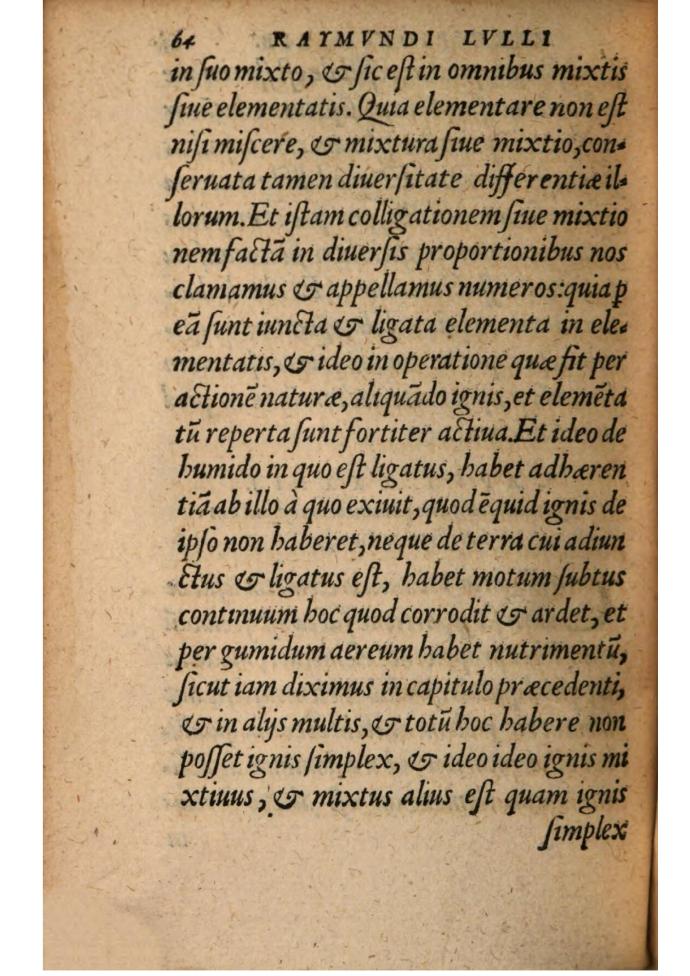 64 RAYMVNDI LVLLI
in ſuo mixto, & ſic eſt in omnibus mixtis
ſiue elementatis. Quia elementare non eſt
niſi miſcere, & mixtura ſiue mixtio, con-
ſeruata tamen diuerſitate differentiæ il-
lorum. Et iſtam colligationem ſiue mixtio
nem factā in diuerſis proportionibus nos
clamamus & appellamus numeros: quia ꝑ
eā ſunt iuncta & ligata elementa in ele-
mentatis, & ideo in operatione quæ fit per
actionē naturæ, aliquādo ignis, et elemēta
tū reperta ſunt fortiter actiua. Et ideo de
humido in quo eſt ligatus, habet adhæren
tiā ab illo à quo exiuit, quod ēquid ignis de
ipſo non haberet, neque de terra cui adiun
ctus & ligatus eſt, habet motum ſubtus
continuum hoc quod corrodit & ardet, et
per gumidum aereum habet nutrimentū,
ſicut iam diximus in capitulo præcedenti,
& in alijs multis, & totū hoc habere non
poſſet ignis ſimplex, & ideo ideo ignis mi
xtiuus, & mixtus alius eſt quam ignis
ſimplex